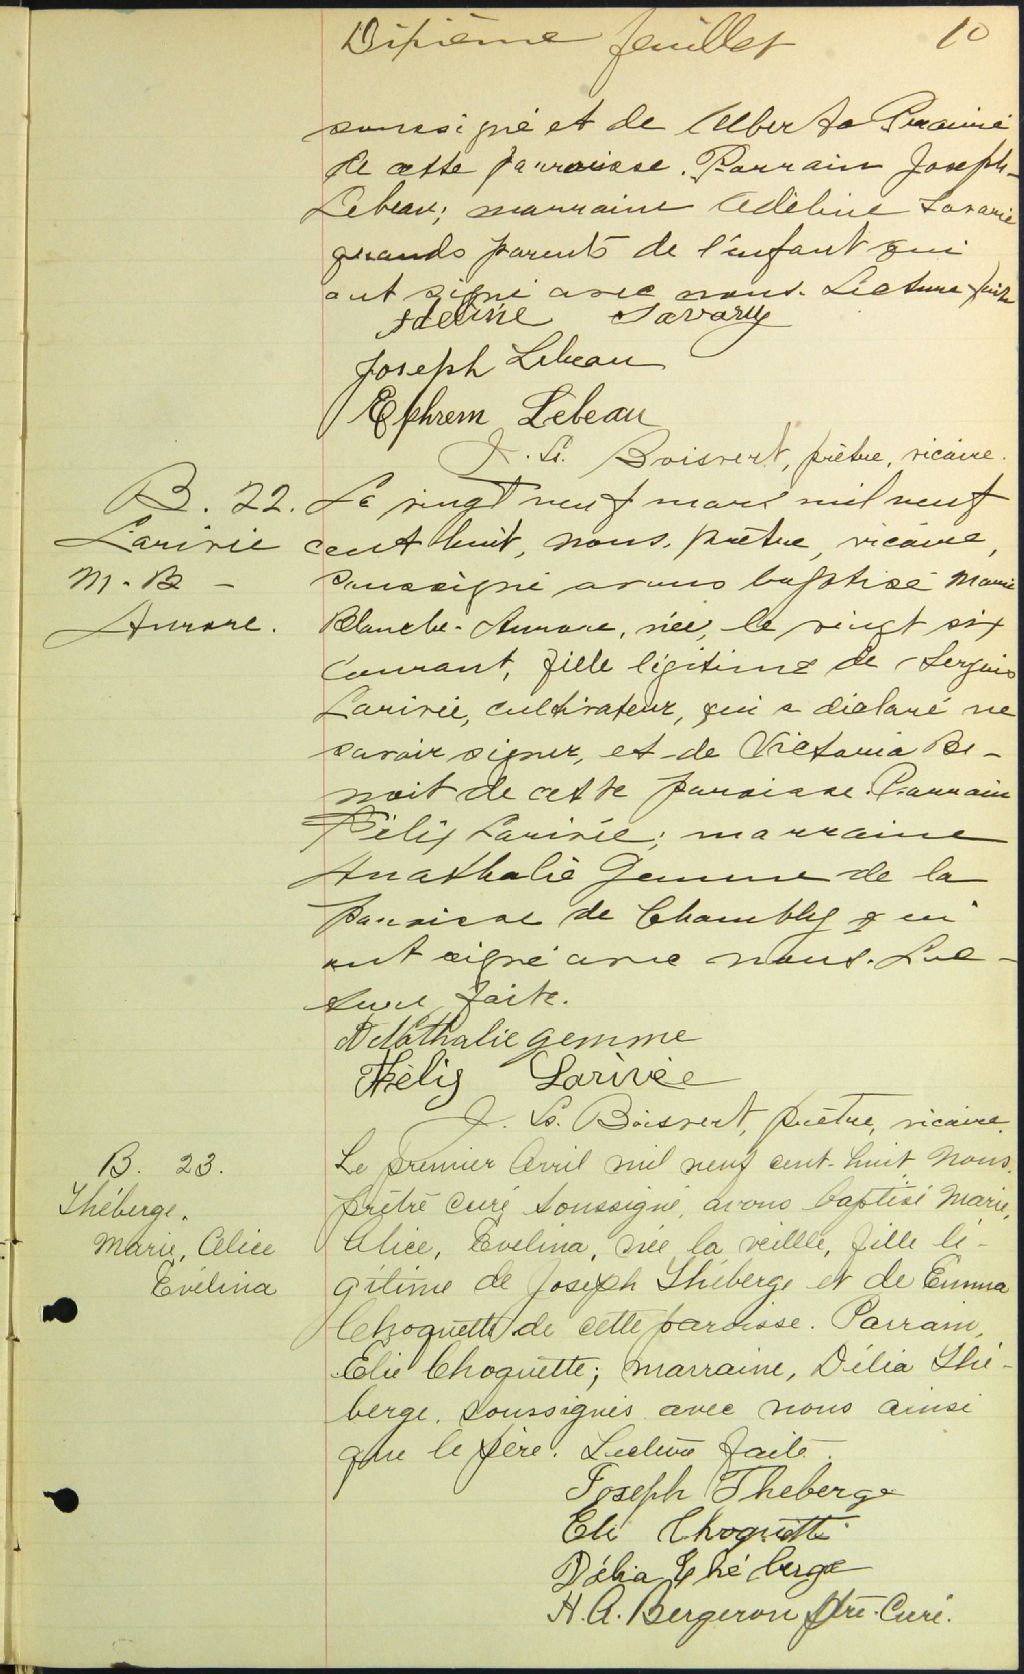 Dixième feuillet 10
soussigné et de Alberta Prairie
de cette parroisse. Parrain Joseph
Lebeau; marraine Adéline Savarie
grands parents de l'enfant qui
ont signé avec nous. Lecture faite
Adeline Savary
Joseph Lebeau
Ephrem Lebeau
Boisvert, prêtre, vicaire.
B. 22.
Larivée
M. B -
Aurore.
Le vingt neuf mars mil neuf
cent huit, nous, prêtre, vicaire,
soussigné avons baptisé Marie
Blanche-Aurore, née, le vingt six
courant, fille légitime de
Larivée, cultivateur, qui a déclaré ne
savoir signer, et de Victoria Be-
noit de cette paroisse. Parrain
Félix Larivée; marraine
Anathalie Gemme de la
paroisse de Chambly qui
ont signé avec nous. Lec-
ture faite.
Nathalie gemme
Félix Larivée
Boisvert, prêtre, vicaire.
B. 23.
Théberge.
Marie, Alice
Evélina
Le premier Avril mil neuf cent-huit Nous,
prêtre curé soussigné, avons baptisé Marie,
Alice, Evelina, née la veille, fille lé-
gitime de Joseph Théberge et de Emma
Choquette de cette paroisse. Parrain,
Elie Choquette; marraine, Délia Thé-
berge, soussignés avec nous ainsi
que le père. Lecture faite.
Joseph Theberge
Eli Choquette
Délia Théberge
H. A. Bergeron ptre. Curé.